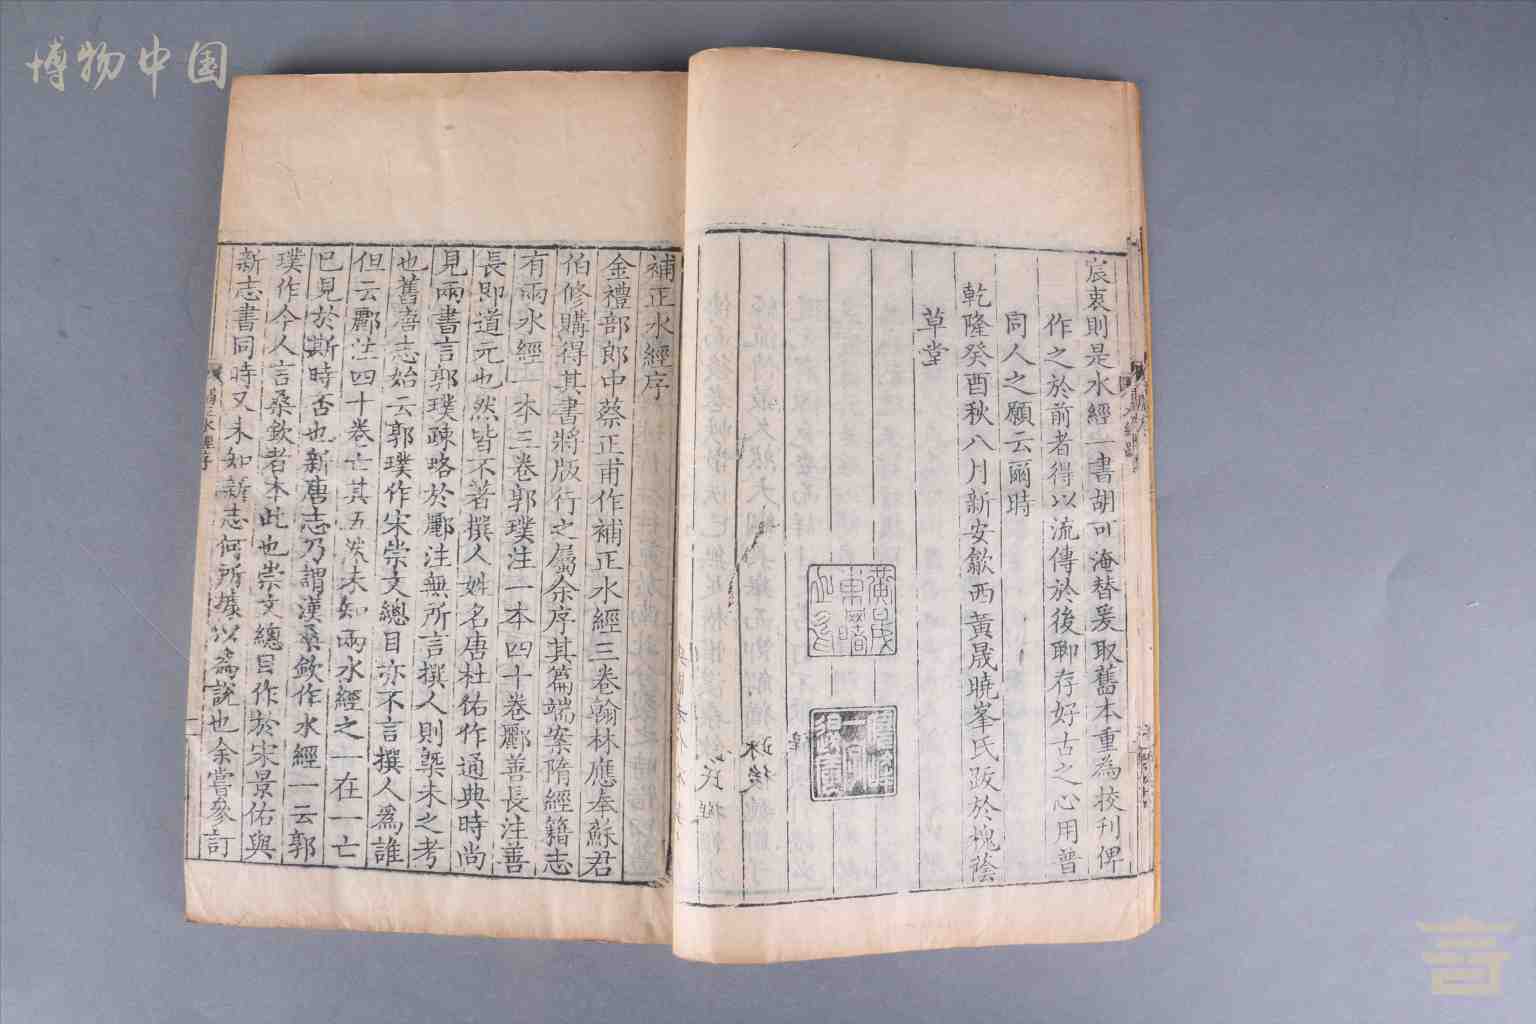 博物中国
宸衷則是水經一書胡可淹替爰取舊本重為挍刊俾
作之於前者得以流傳於後聊存好古之心用普
同人之願云爾時
乾隆癸酉秋八月新安歙西黃晟曉峯氏跋於槐蔭
草堂
黃晟
東曙
補正水經序
金禮部郎中蔡正甫作補正水經三卷翰林應奉蘇君
伯修購得其書將版行之屬余序其篇端案隋經籍志
有兩水經一本三卷郭璞注一本四十卷酈善長注善
長即道元也然皆不著撰人姓名唐杜佑作通典時尚
見兩書言郭璞疎略於酈注無所言撰人則槩未之考
也舊唐志始云郭璞作宋崇文總目亦不言撰人為誰
但云酈注四十卷亡其五然未知兩水經之一在一亡
已見於斯時否也新唐志乃謂漢桑欽作水經一云郭
璞作今人言桑欽者本此也崇文總目作於宋景佑與
新志書同時又未知新志何所據以為說也余嘗參訂